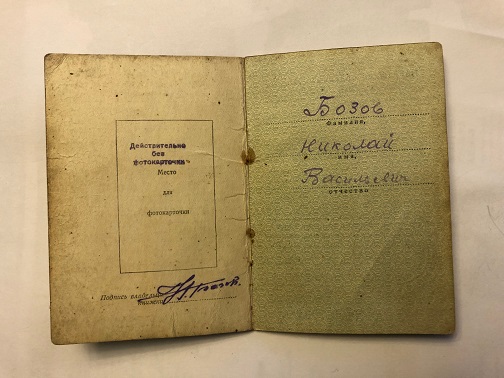 Действительно
без
фотокарточки
Место
для
фотокарточки
Подпись владельца
книжки
Н.Бозов.
Бозов
фамилия,
Николай
имя,
Васильевич
отчество